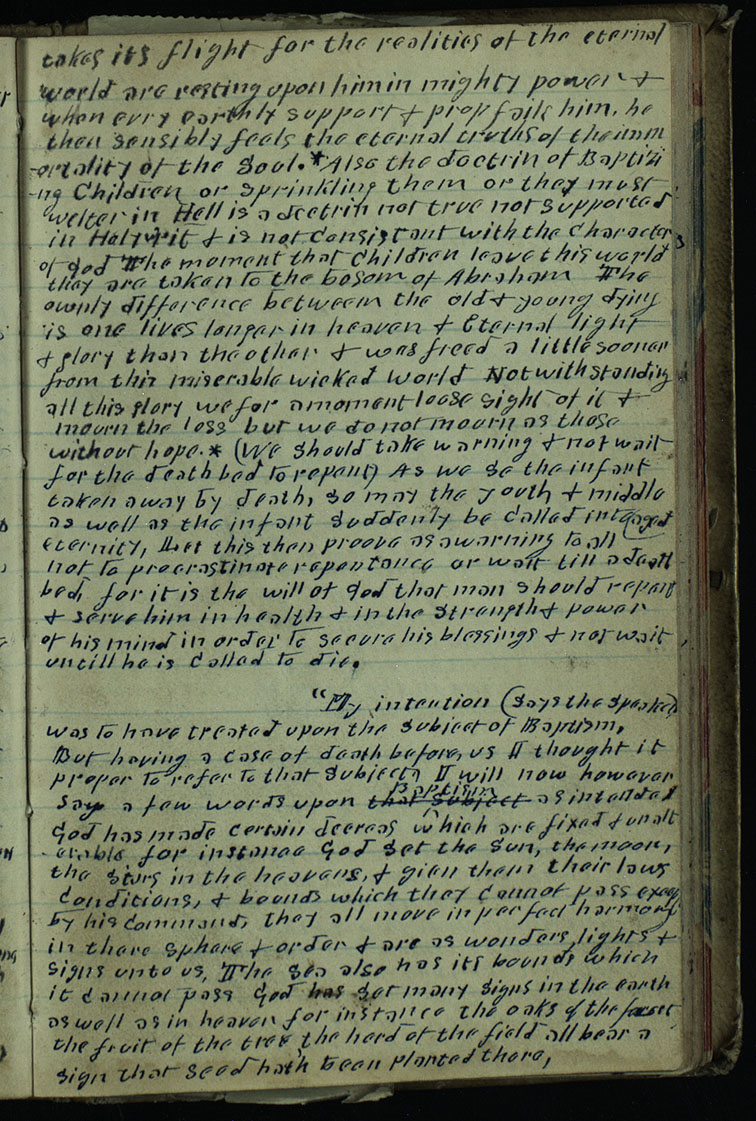 takes its flight for the realities of the eternal
world are resting upon him in mighty power &
when evry earthly support & prop fails him, he
then sensibly feels the eternal truths of the imm
-ortality of the Soul.* Also the doctrin of Baptizi
-ng Children or sprinkling them or they must
welter in Hell is a doctrin not true not supported
in Holy rit & is not consistant with the Character
of God The moment that Children leave this world
they are taken to the bosom of Abraham The
ownly difference betweem the old & young dying
is one lives longer in heaven & Eternal light
& glory than the other & was freed a little sooner
from this miserable wicked world Notwithstanding
all this glory we for a moment loose sight of it &
mourn the loss but we do not mourn as those
without hope.* (We should take warning & not wait
for the death bed to repent) As we se the infant
taken away by death, so may the youth & middle
as well as the infant suddenly be called into aged
eternity, Let this then proove as a warning to all
not to procrastinate repentance or wait till a death
bed, for it is the will of God that man should repent
& serve him in health & in the strength & power
of his mind in order to secure his blessings & not wait
untill he is called to die.
"My intention (says the speaker)
was to have treated upon the subject of Baptism,
But having a case of death before, us I thought it
proper to refer to that subject, I will now however
Baptism
say a few words upon that subject as intended
God has made certain decreas which are fixed & unalt
-erable for instance God set the sun, the moon,
the stars in the heavens, & gien them their laws
conditions, & bounds which they cannot pass except
by his command, they all move in perfect harmony
in there sphere & order & are as wonders, lights &
signs unto us, The sea also has its bounds which
it cannot pass God has set many signs in the earth
as well as in heaven for instance the oaks of the forest
the fruit of the tree the herd of the field all bear a
sign that seed hath been planted there,